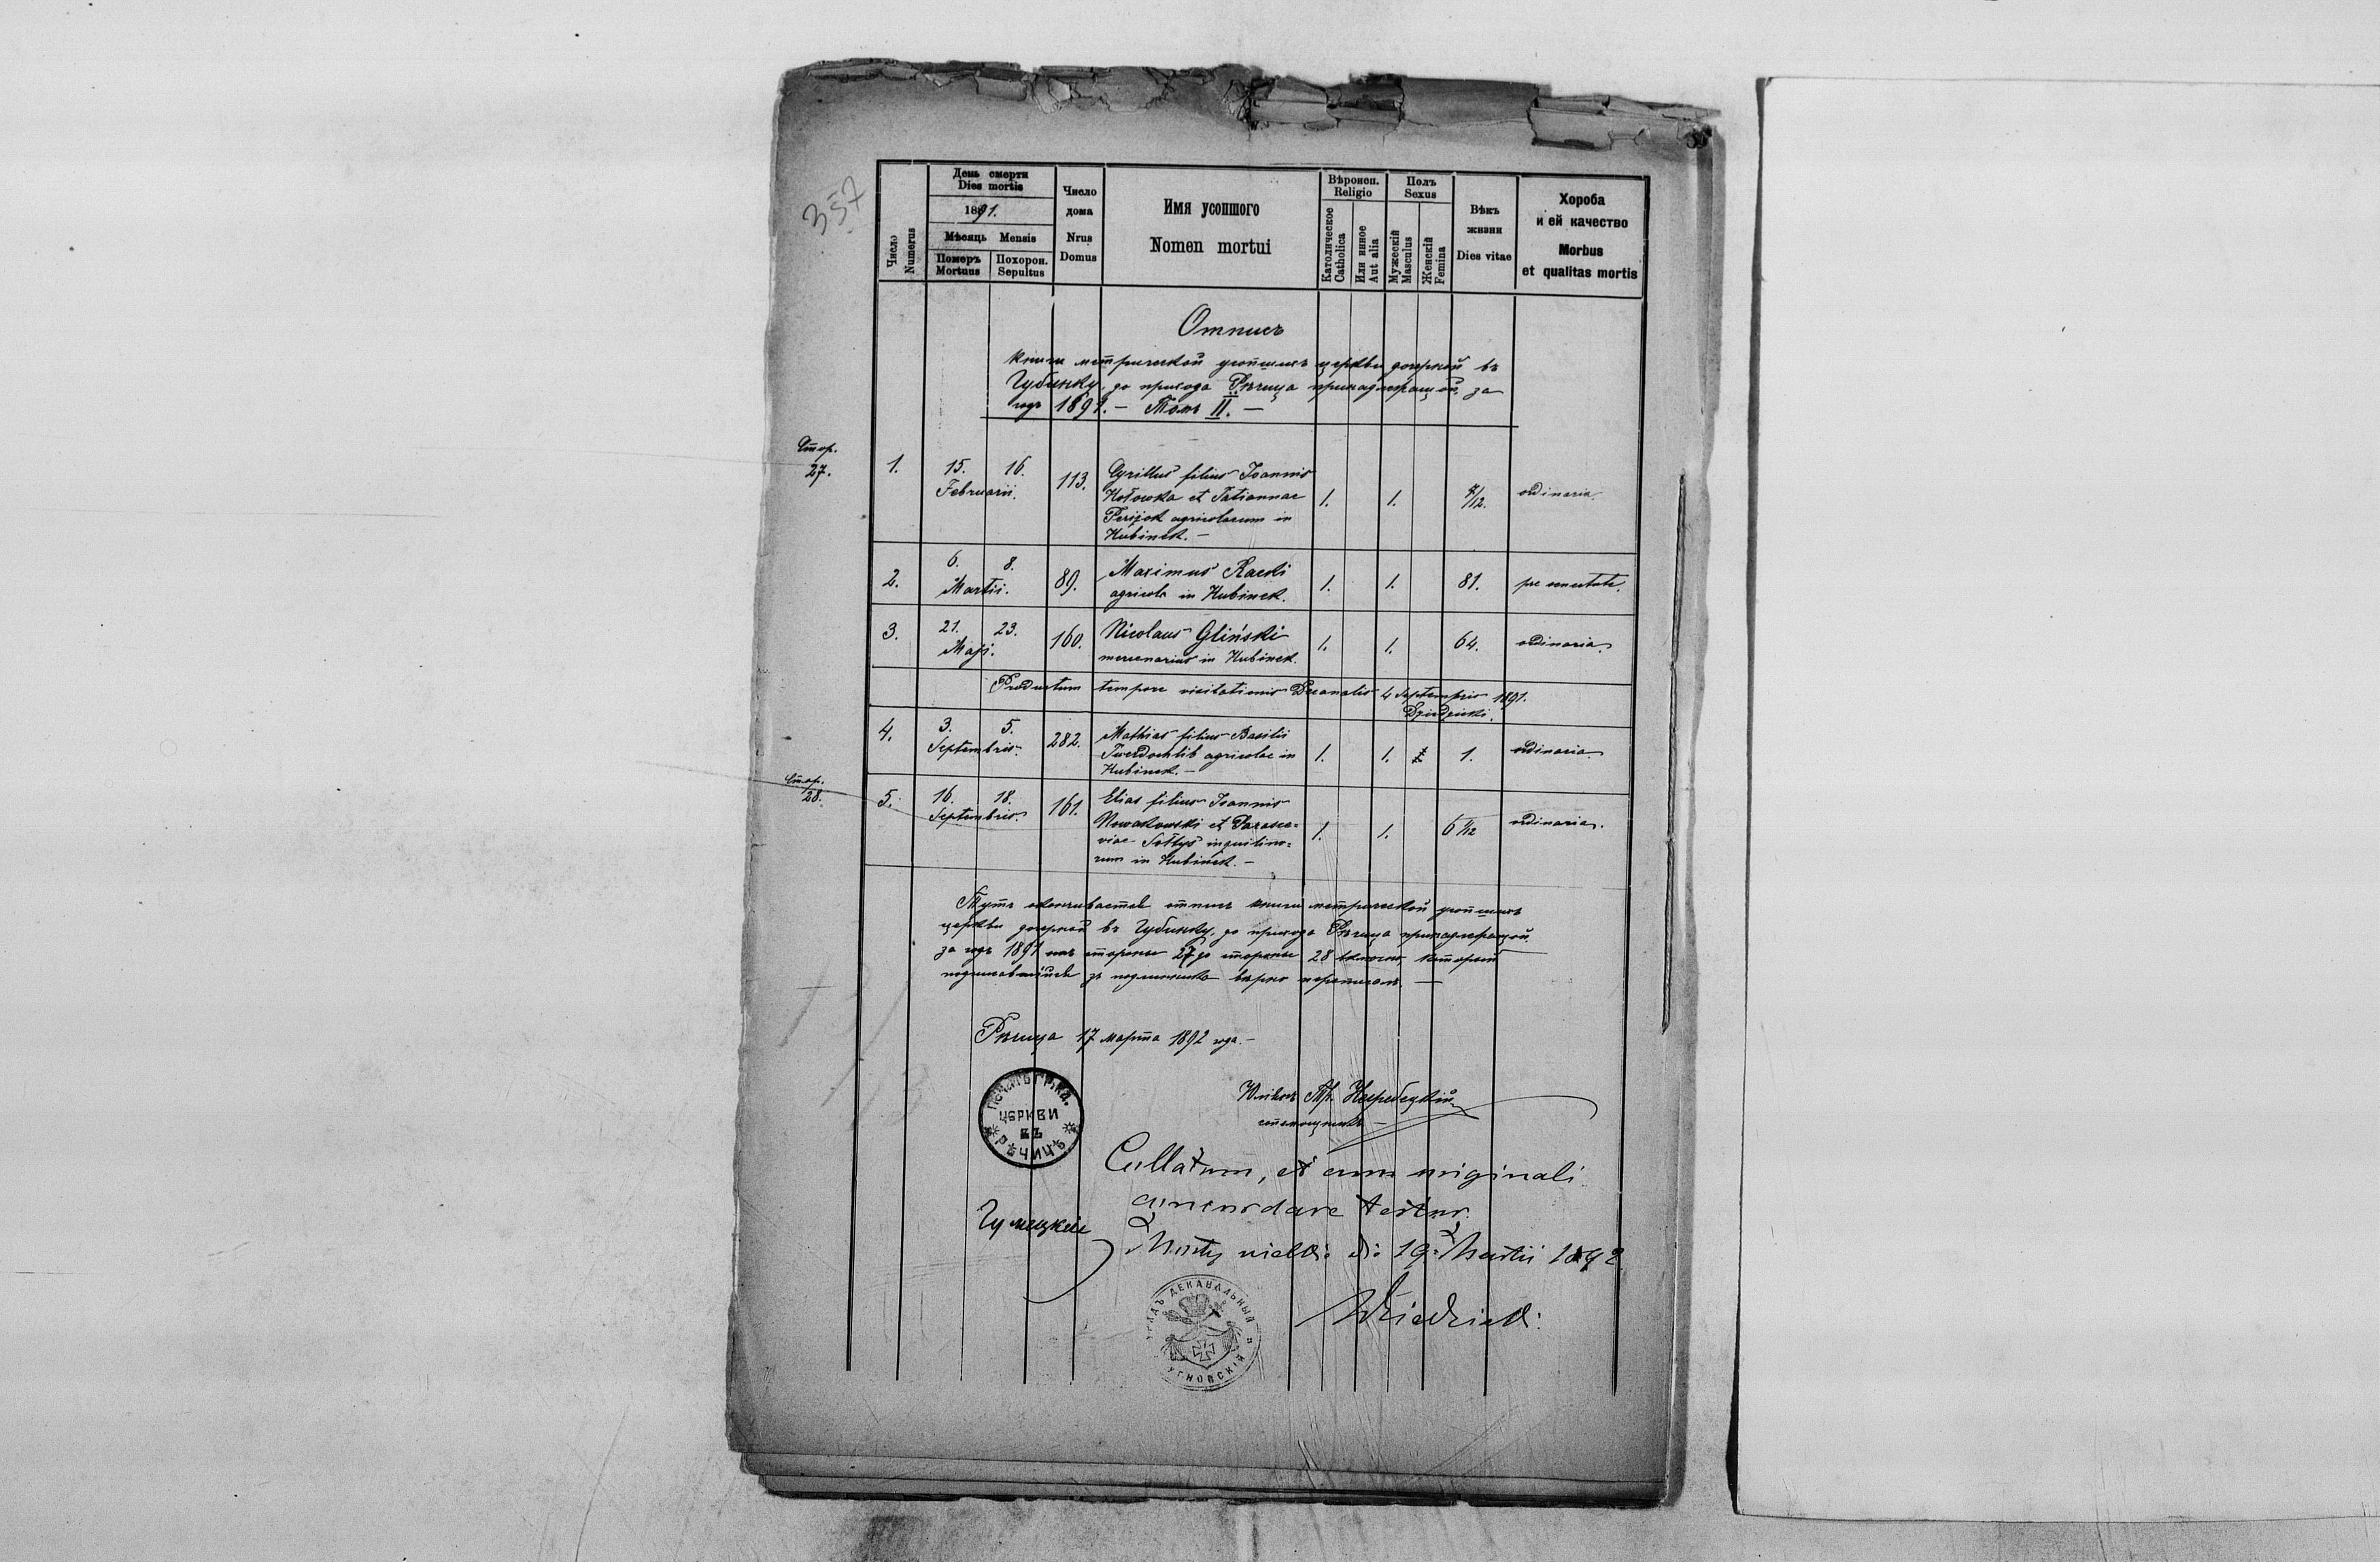 357
День смерти
Dies mortis
1891.
Мѣсяць Mensis
Померъ Похорон.
Mortuus Sepultus
Число
Numerus
Число
дома
Nrus
Domus
Имя усопшого
Nomen mortui
Вѣроисп.
Religio
Католическое
Catholica
Или инное
Aut alia
Полъ
Sexus
Мужескій
Masculus
Женскій
Femina
Вѣкъ
жизни
Dies vitae
Хороба
и ей качество
Morbus
et qualitas mortis
Отписъ
книги метрической усопшихъ церкви дочерной въ
Губинку, до прихода Рѣчица принадлежащой, за
годъ 1891. — Томъ II. —
Стор.
27.
1. 15. 16. Februarii. 113. Cyrillus filius Joannis
Hołowka et Tatiannae
agricolarum in
Hubinek. —
1. 1. /12. ordinaria.
2. 6. 8. Martii. 89. Maximus Racki
agricola in Hubinek.
1. 1. 81. prae senectute.
3. 21. 23. Maji. 160. Nicolaus Gliński
mercenarius in Hubinek.
1. 1. 64. ordinaria.
Productum tempore visitationis Decanalis 4 Septembris 1891.
Dziedzicki.
4. 3. 5. Septembris. 282. Mathias filius Basilii
Twerdochlib agricolae in
Hubinek. —
1. 1. 1. ordinaria.
Стор.
28.
5. 16. 18. Septembris. 161. Elias filius Joannis
Nowakowski et Parasce=
viae Sołtys inquilino=
rum in Hubinek. —
1. 1. 6 /12 ordinaria.
Тутъ оканчивается отписъ книги метрической усопшихъ
церкви дочерной въ Губинку, до прихода Рѣчица принадлежащой
за годъ 1891 стороны 27 до стороны 28 включно, который
подписавшійся зъ подлинника вѣрно переписалъ. —
Рѣчица 17 марта 1892 года. —
ПЕЧАТЬ ГР. КА.
ЦЕРКВИ
ВЪ
РѢЧИЦѢ
Юліанъ
Collatum, et cum originali
concordare testor.
Mosty wielkie die 19. Martii 1892
Dziedzicki
УРЯДЪ ДЕКАНАЛЬНЫЙ
УГНОВСКІЙ